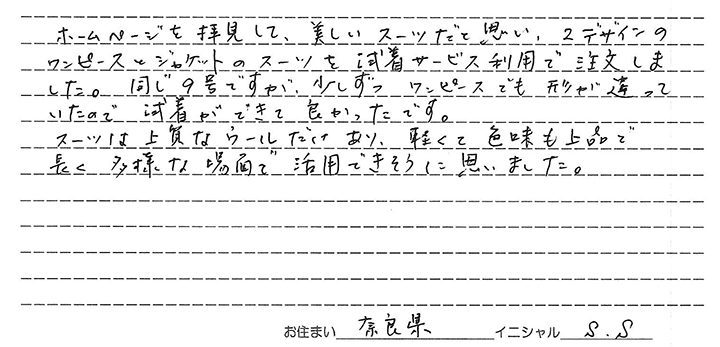 ホームページを拝見して、美しいスーツだと思い、2デザインの
ワンピースとジャケットのスーツを試着サービス利用で注文しま
した。同じ9号ですが、少しずつワンピースでも形が違って
いたので試着ができて良かったです。
スーツは上質なウールだけあり、軽くて色味も上品で
長く多様な場面で活用できそうに思いました。
お住まい 奈良県 イニシャル S.S